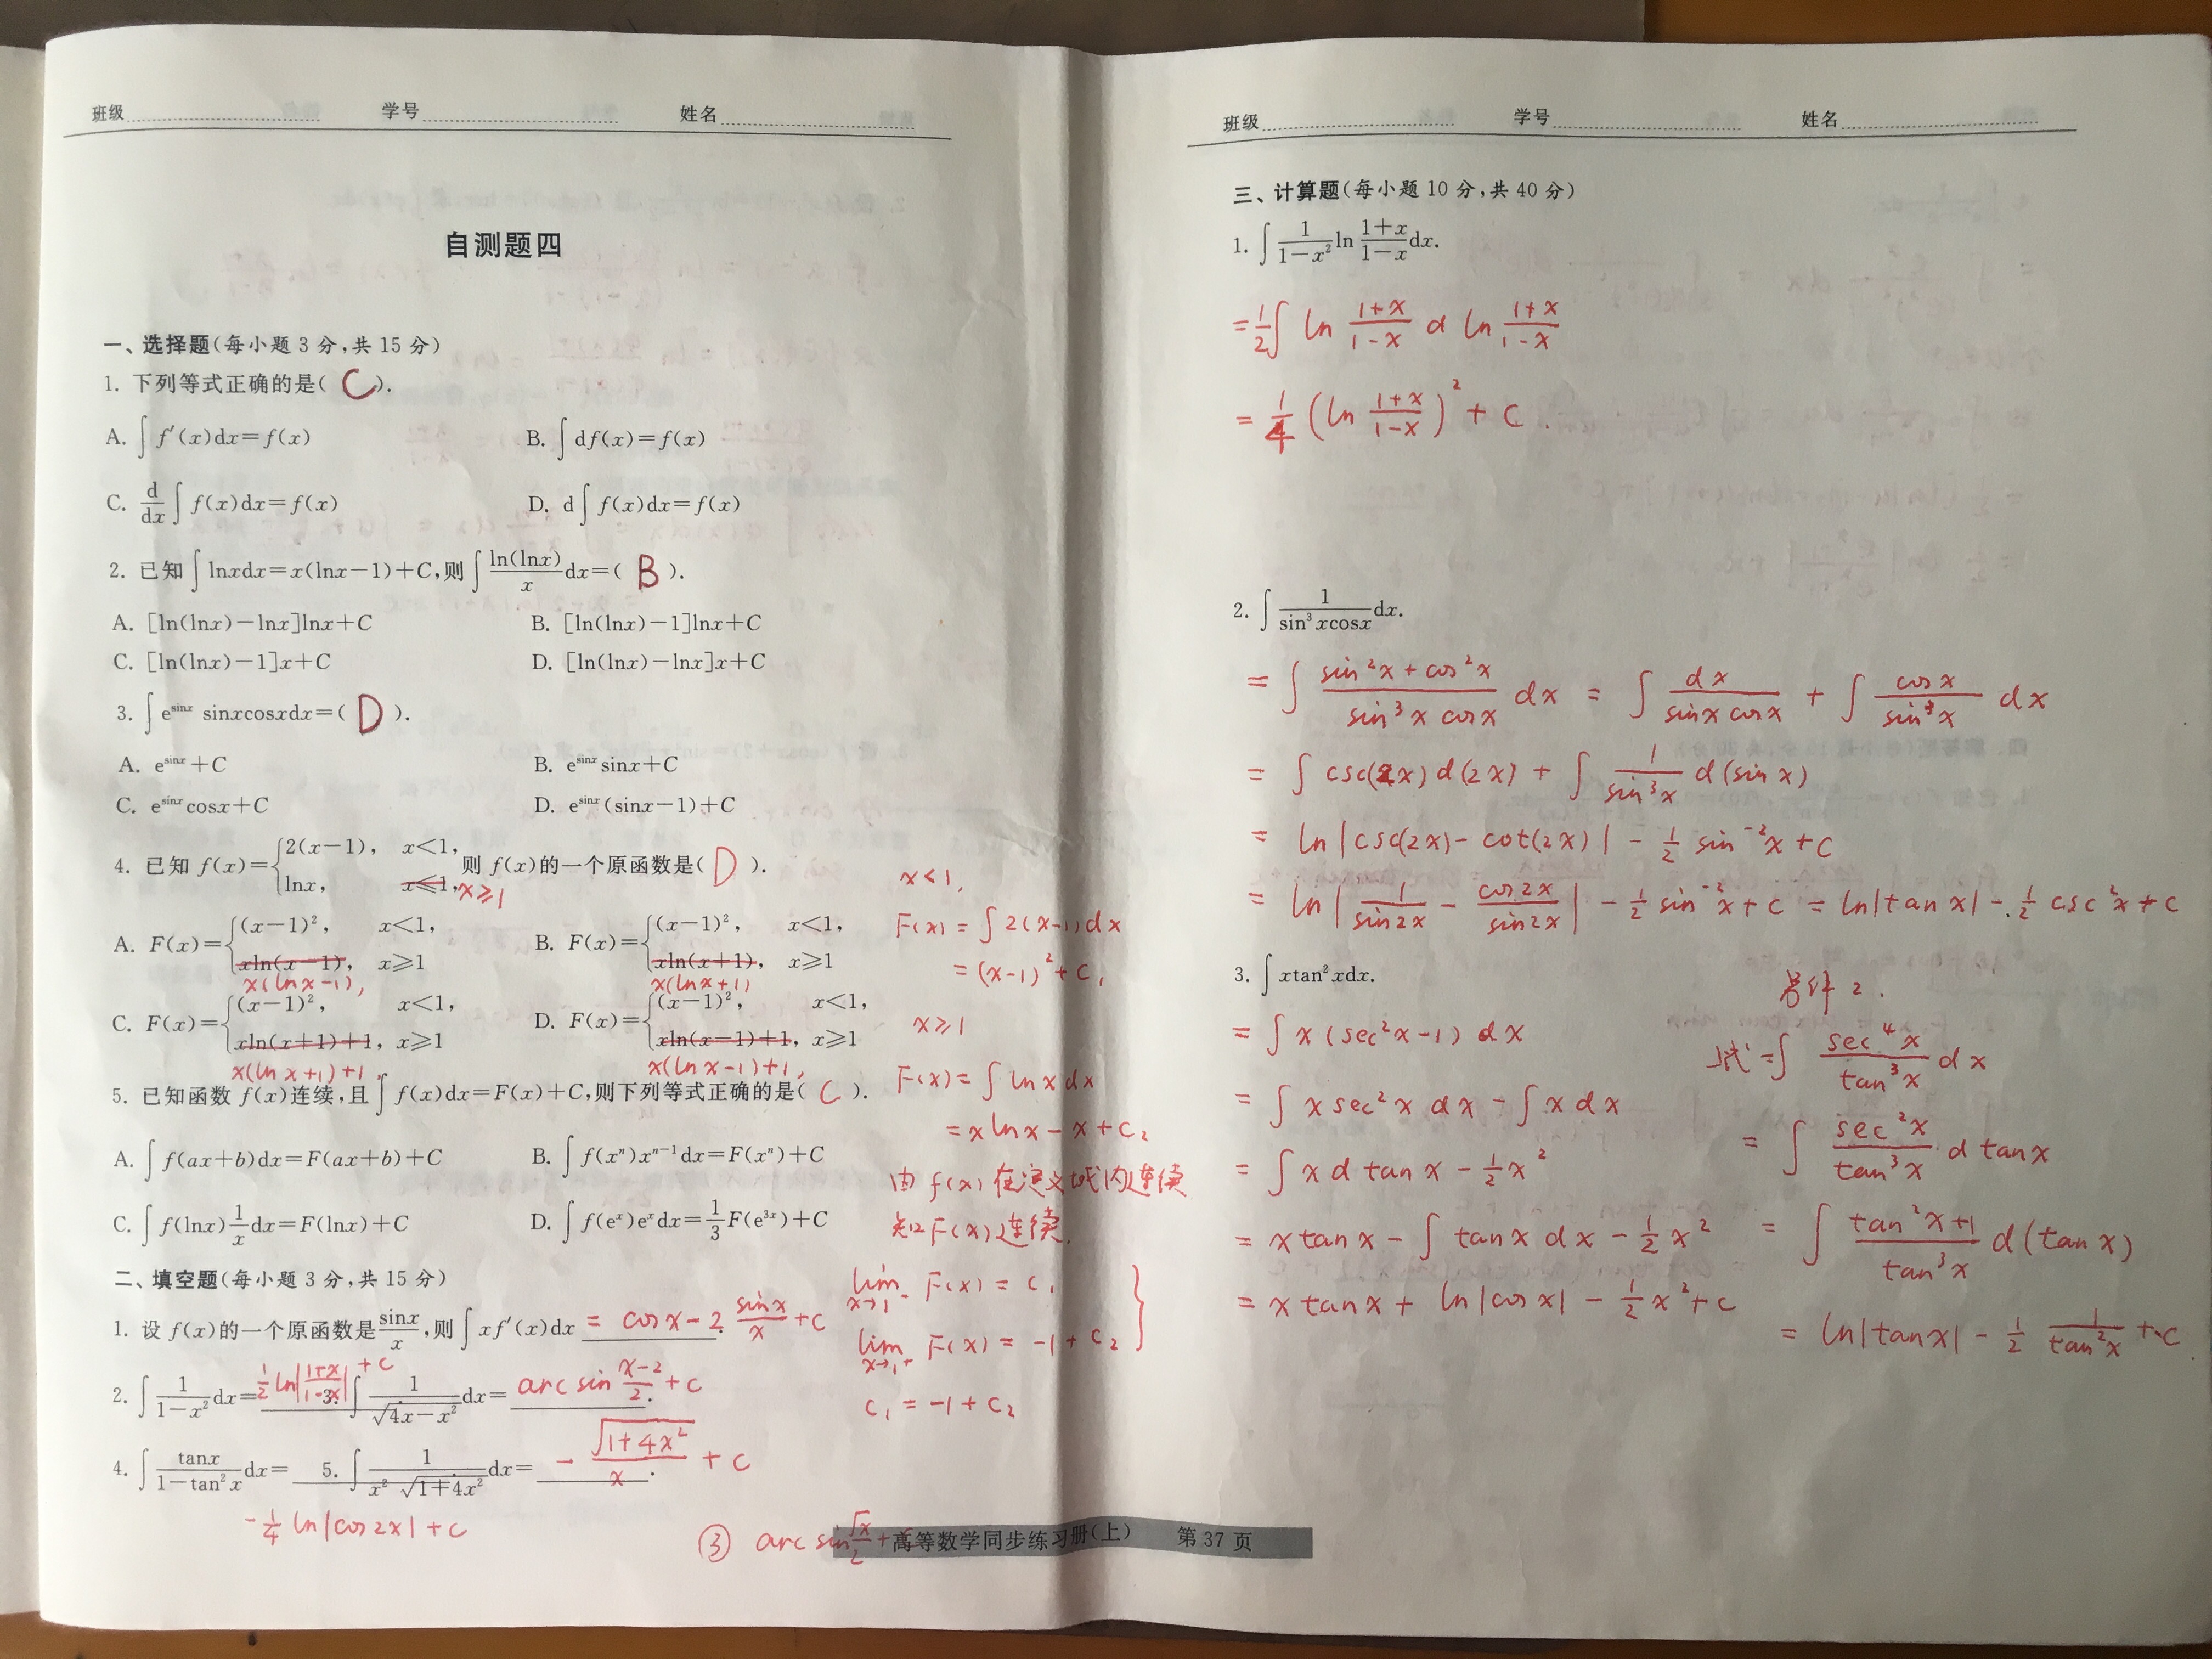 班级 学号 姓名
自测题四
一、选择题(每小题 3 分,共 15 分)
1. 下列等式正确的是( C ).
A. ∫ f′(x)dx=f(x) B. ∫ df(x)=f(x)
C. d/dx ∫ f(x)dx=f(x) D. d∫ f(x)dx=f(x)
2. 已知 ∫ lnxdx=x(lnx−1)+C,则 ∫ ln(lnx)/x dx=( B ).
A. [ln(lnx)−lnx]lnx+C B. [ln(lnx)−1]lnx+C
C. [ln(lnx)−1]x+C D. [ln(lnx)−lnx]x+C
3. ∫ e^sinx sinxcosxdx=( D ).
A. e^sinx+C B. e^sinx sinx+C
C. e^sinx cosx+C D. e^sinx(sinx−1)+C
4. 已知 f(x)={2(x−1), x<1, lnx, x≤1, x≥1 则 f(x)的一个原函数是( D ).
A. F(x)={(x−1)², x<1, xln(x−1), x≥1 B. F(x)={(x−1)², x<1, xln(x+1), x≥1
x(lnx−1), x(lnx+1)
C. F(x)={(x−1)², x<1, xln(x+1)+1, x≥1 D. F(x)={(x−1)², x<1, xln(x−1)+1, x≥1
x(lnx+1)+1, x(lnx−1)+1,
5. 已知函数 f(x)连续,且∫ f(x)dx=F(x)+C,则下列等式正确的是( C ).
A. ∫ f(ax+b)dx=F(ax+b)+C B. ∫ f(xⁿ)xⁿ⁻¹dx=F(xⁿ)+C
C. ∫ f(lnx) 1/x dx=F(lnx)+C D. ∫ f(eˣ)eˣdx=1/3 F(e³ˣ)+C
x<1,
F(x) = ∫ 2(x−1)dx
= (x−1)²+C₁
x≥1
F(x) = ∫ lnx dx
= xlnx−x+C₂
由 f(x) 在定义域内连续
知 F(x) 连续.
lim x→1⁻ F(x) = C₁
lim x→1⁺ F(x) = −1+C₂ }
C₁ = −1+C₂
二、填空题(每小题 3 分,共 15 分)
1. 设 f(x)的一个原函数是 sinx/x,则∫ xf′(x)dx = cosx−2 sinx/x +C.
2. ∫ 1/(1−x²) dx= 1/2 ln|(1+x)/(1−x)| +C 3. ∫ 1/√(4x−x²) dx= arcsin (x−2)/2 +C.
4. ∫ tanx/(1−tan²x) dx= 5. ∫ 1/(x²√(1+4x²)) dx= −√(1+4x²)/x +C.
−1/4 ln|cos2x|+C
③ arcsin √x/2 +
高等数学同步练习册(上) 第 37 页
班级 学号 姓名
三、计算题(每小题 10 分,共 40 分)
1. ∫ 1/(1−x²) ln (1+x)/(1−x) dx.
= 1/2 ∫ ln (1+x)/(1−x) d ln (1+x)/(1−x)
= 1/4 (ln (1+x)/(1−x))² + C.
2. ∫ 1/(sin³xcosx) dx.
= ∫ (sin²x+cos²x)/(sin³x cosx) dx = ∫ dx/(sinx cosx) + ∫ cosx/sin³x dx
= ∫ csc(2x)d(2x) + ∫ 1/sin³x d(sinx)
= ln|csc(2x)−cot(2x)| − 1/2 sin⁻²x+C
= ln|1/sin2x − cos2x/sin2x| − 1/2 sin⁻²x+C = ln|tanx| − 1/2 csc²x+C
3. ∫ xtan²xdx.
= ∫ x(sec²x−1) dx
= ∫ x sec²x dx − ∫ x dx
= ∫ x d tanx − 1/2 x²
= x tanx − ∫ tanx dx − 1/2 x²
= x tanx + ln|cosx| − 1/2 x²+C
2.
上式 = ∫ sec⁴x/tan³x dx
= ∫ sec²x/tan³x d tanx
= ∫ (tan²x+1)/tan³x d(tanx)
= ln|tanx| − 1/2 1/tan²x +C.